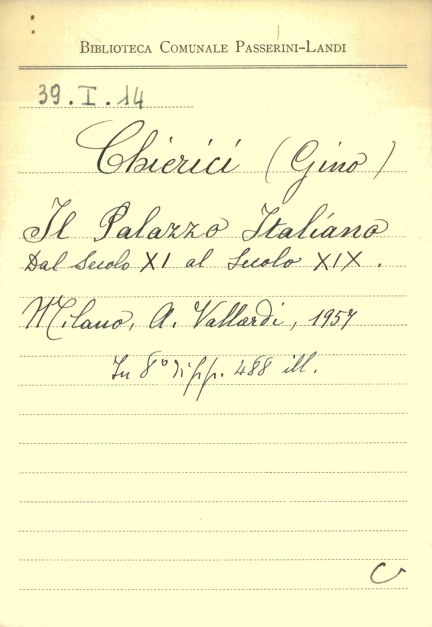 BIBLIOTECA COMUNALE PASSERINI-LANDI
39.I.14
Chierici (Gino)
Il Palazzo Italiano
Dal Secolo XI al Secolo XIX.
Milano, A. Vallardi, 1957
In 8° di pp. 488 ill.
C